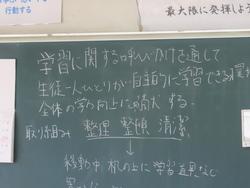 行動する
最大限に発揮しよう
学習に関する呼びかけを通して
生徒一人ひとりが自主的に学習できる環境
全体の学力向上に貢献する。
取り組み 整理 整頓 清潔
↓
移動中 机の上に学習道具など